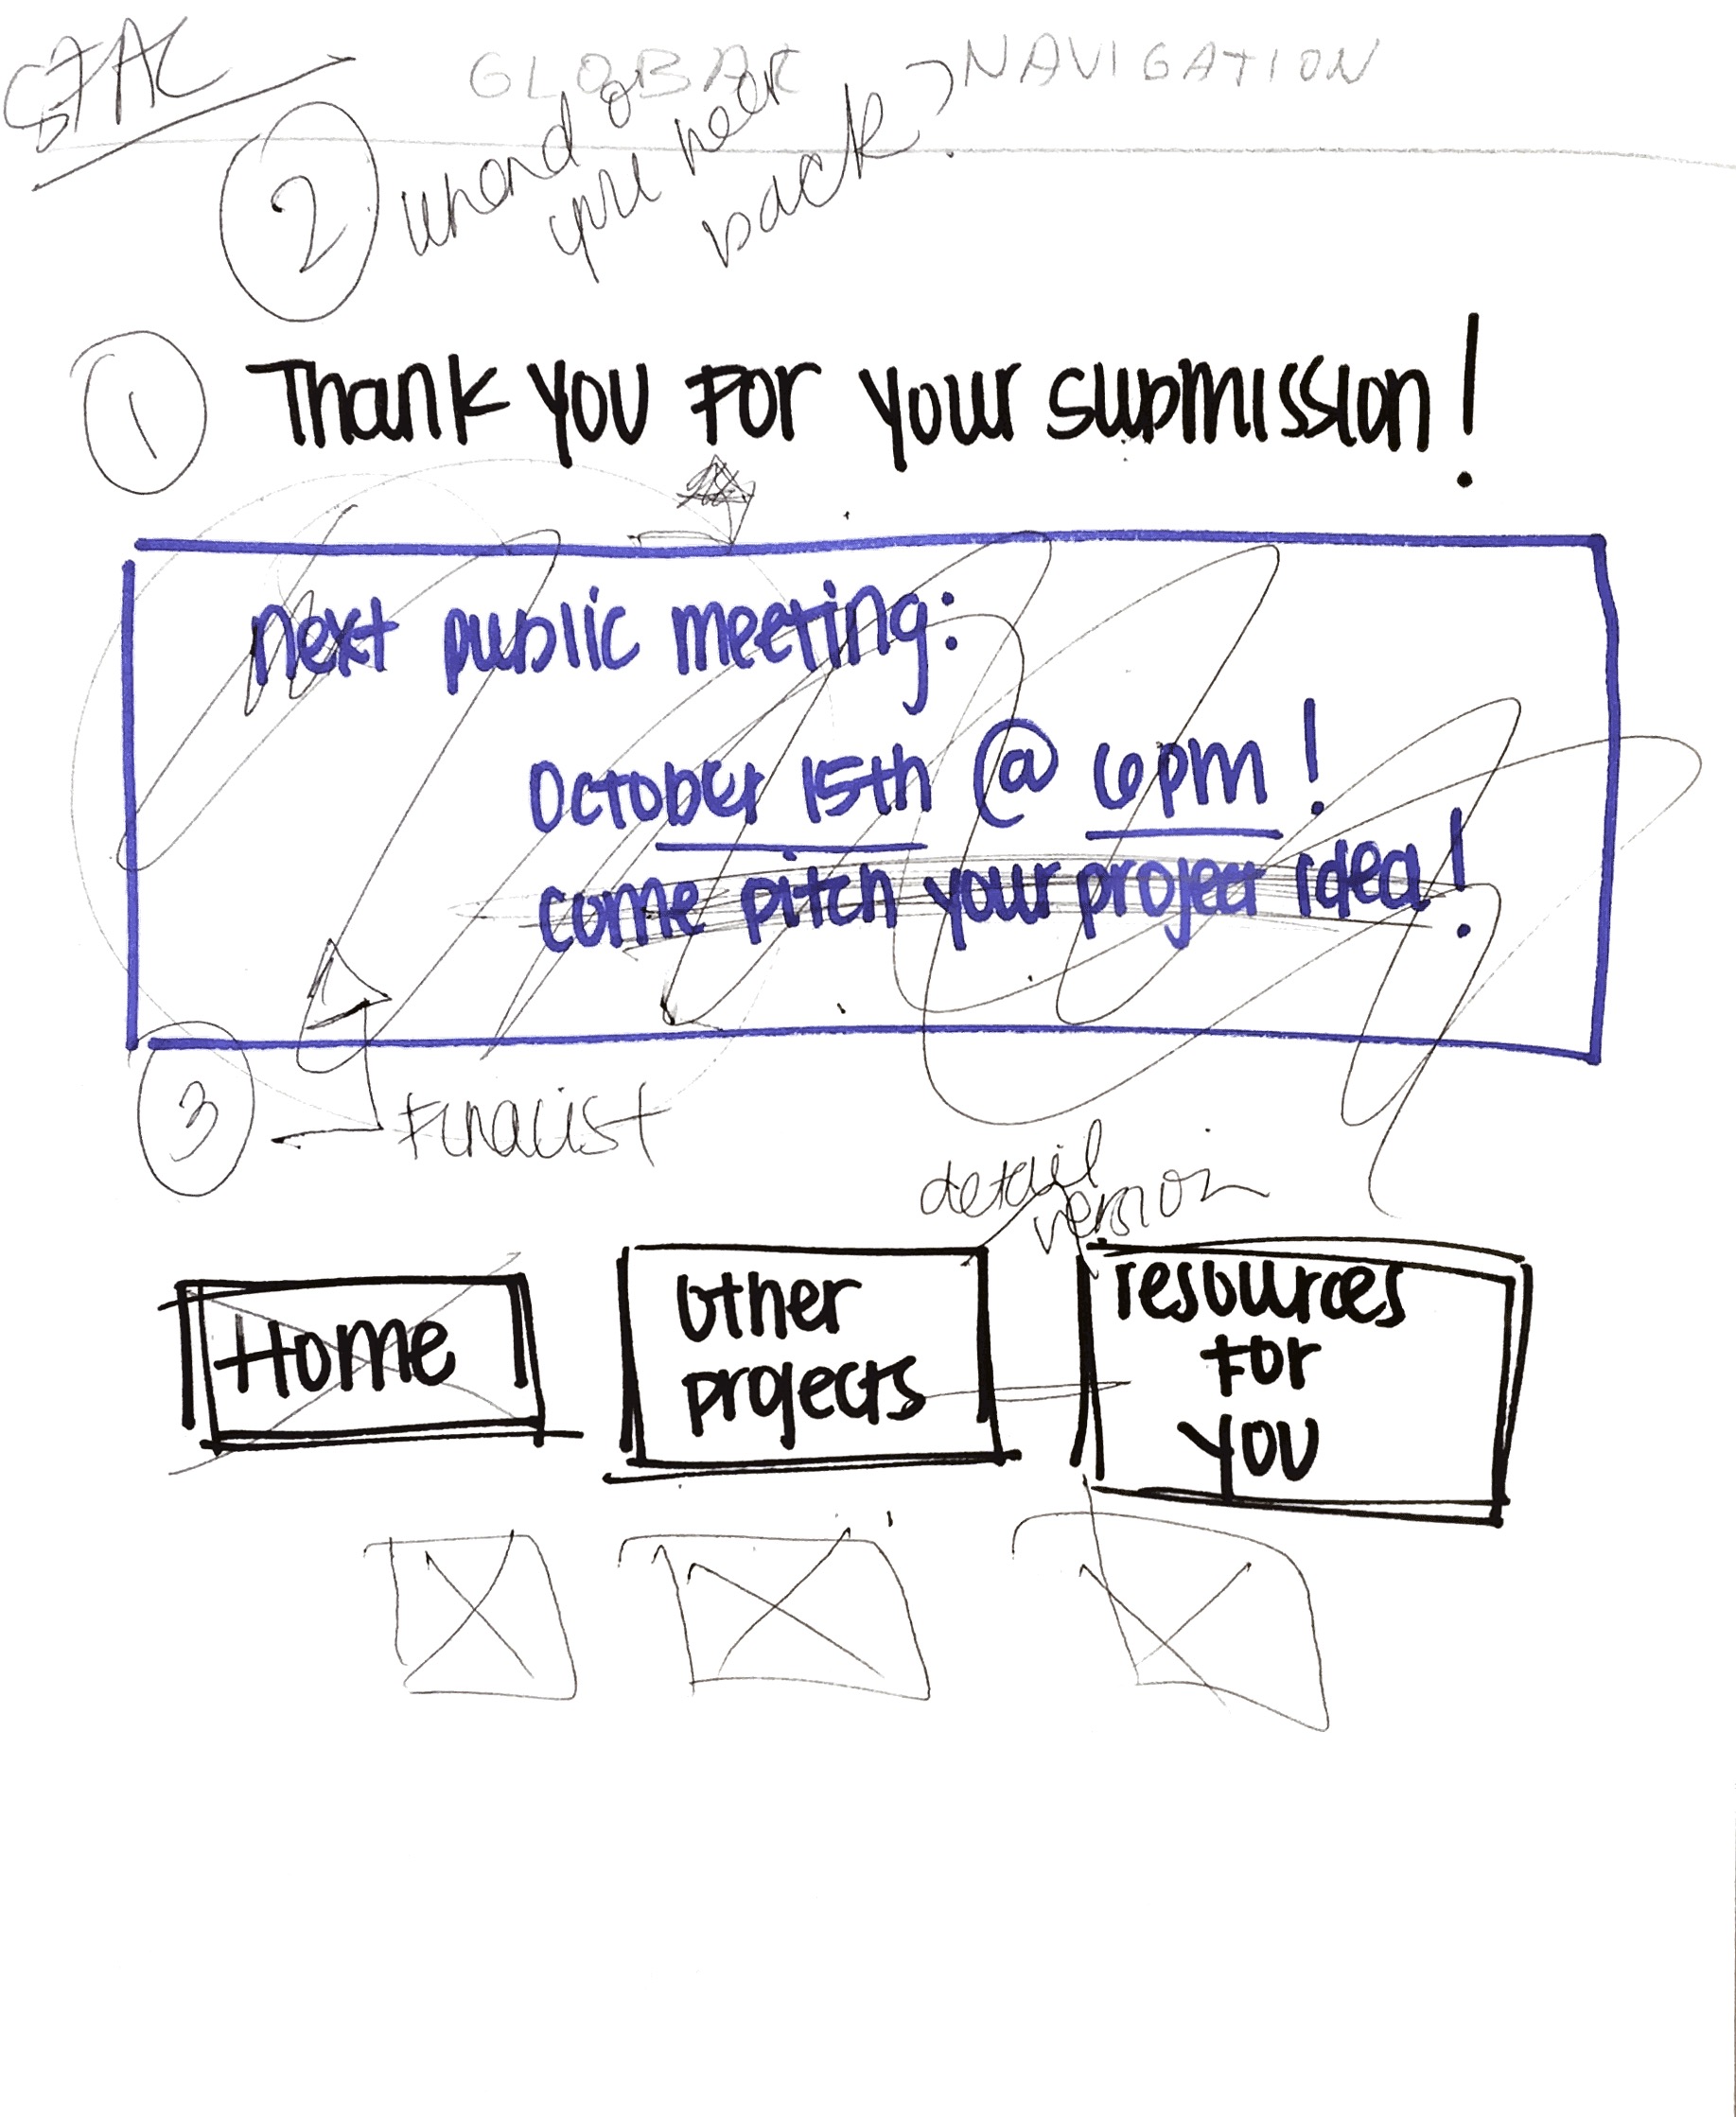 GLOBAL NAVIGATION
2
you hear
back?
1 Thank you For your submission!
next public meeting:
October 15th @ 6pm!
come pitch your project idea!
3 Finalist
detail
version
Home
other
projects
resources
For
you